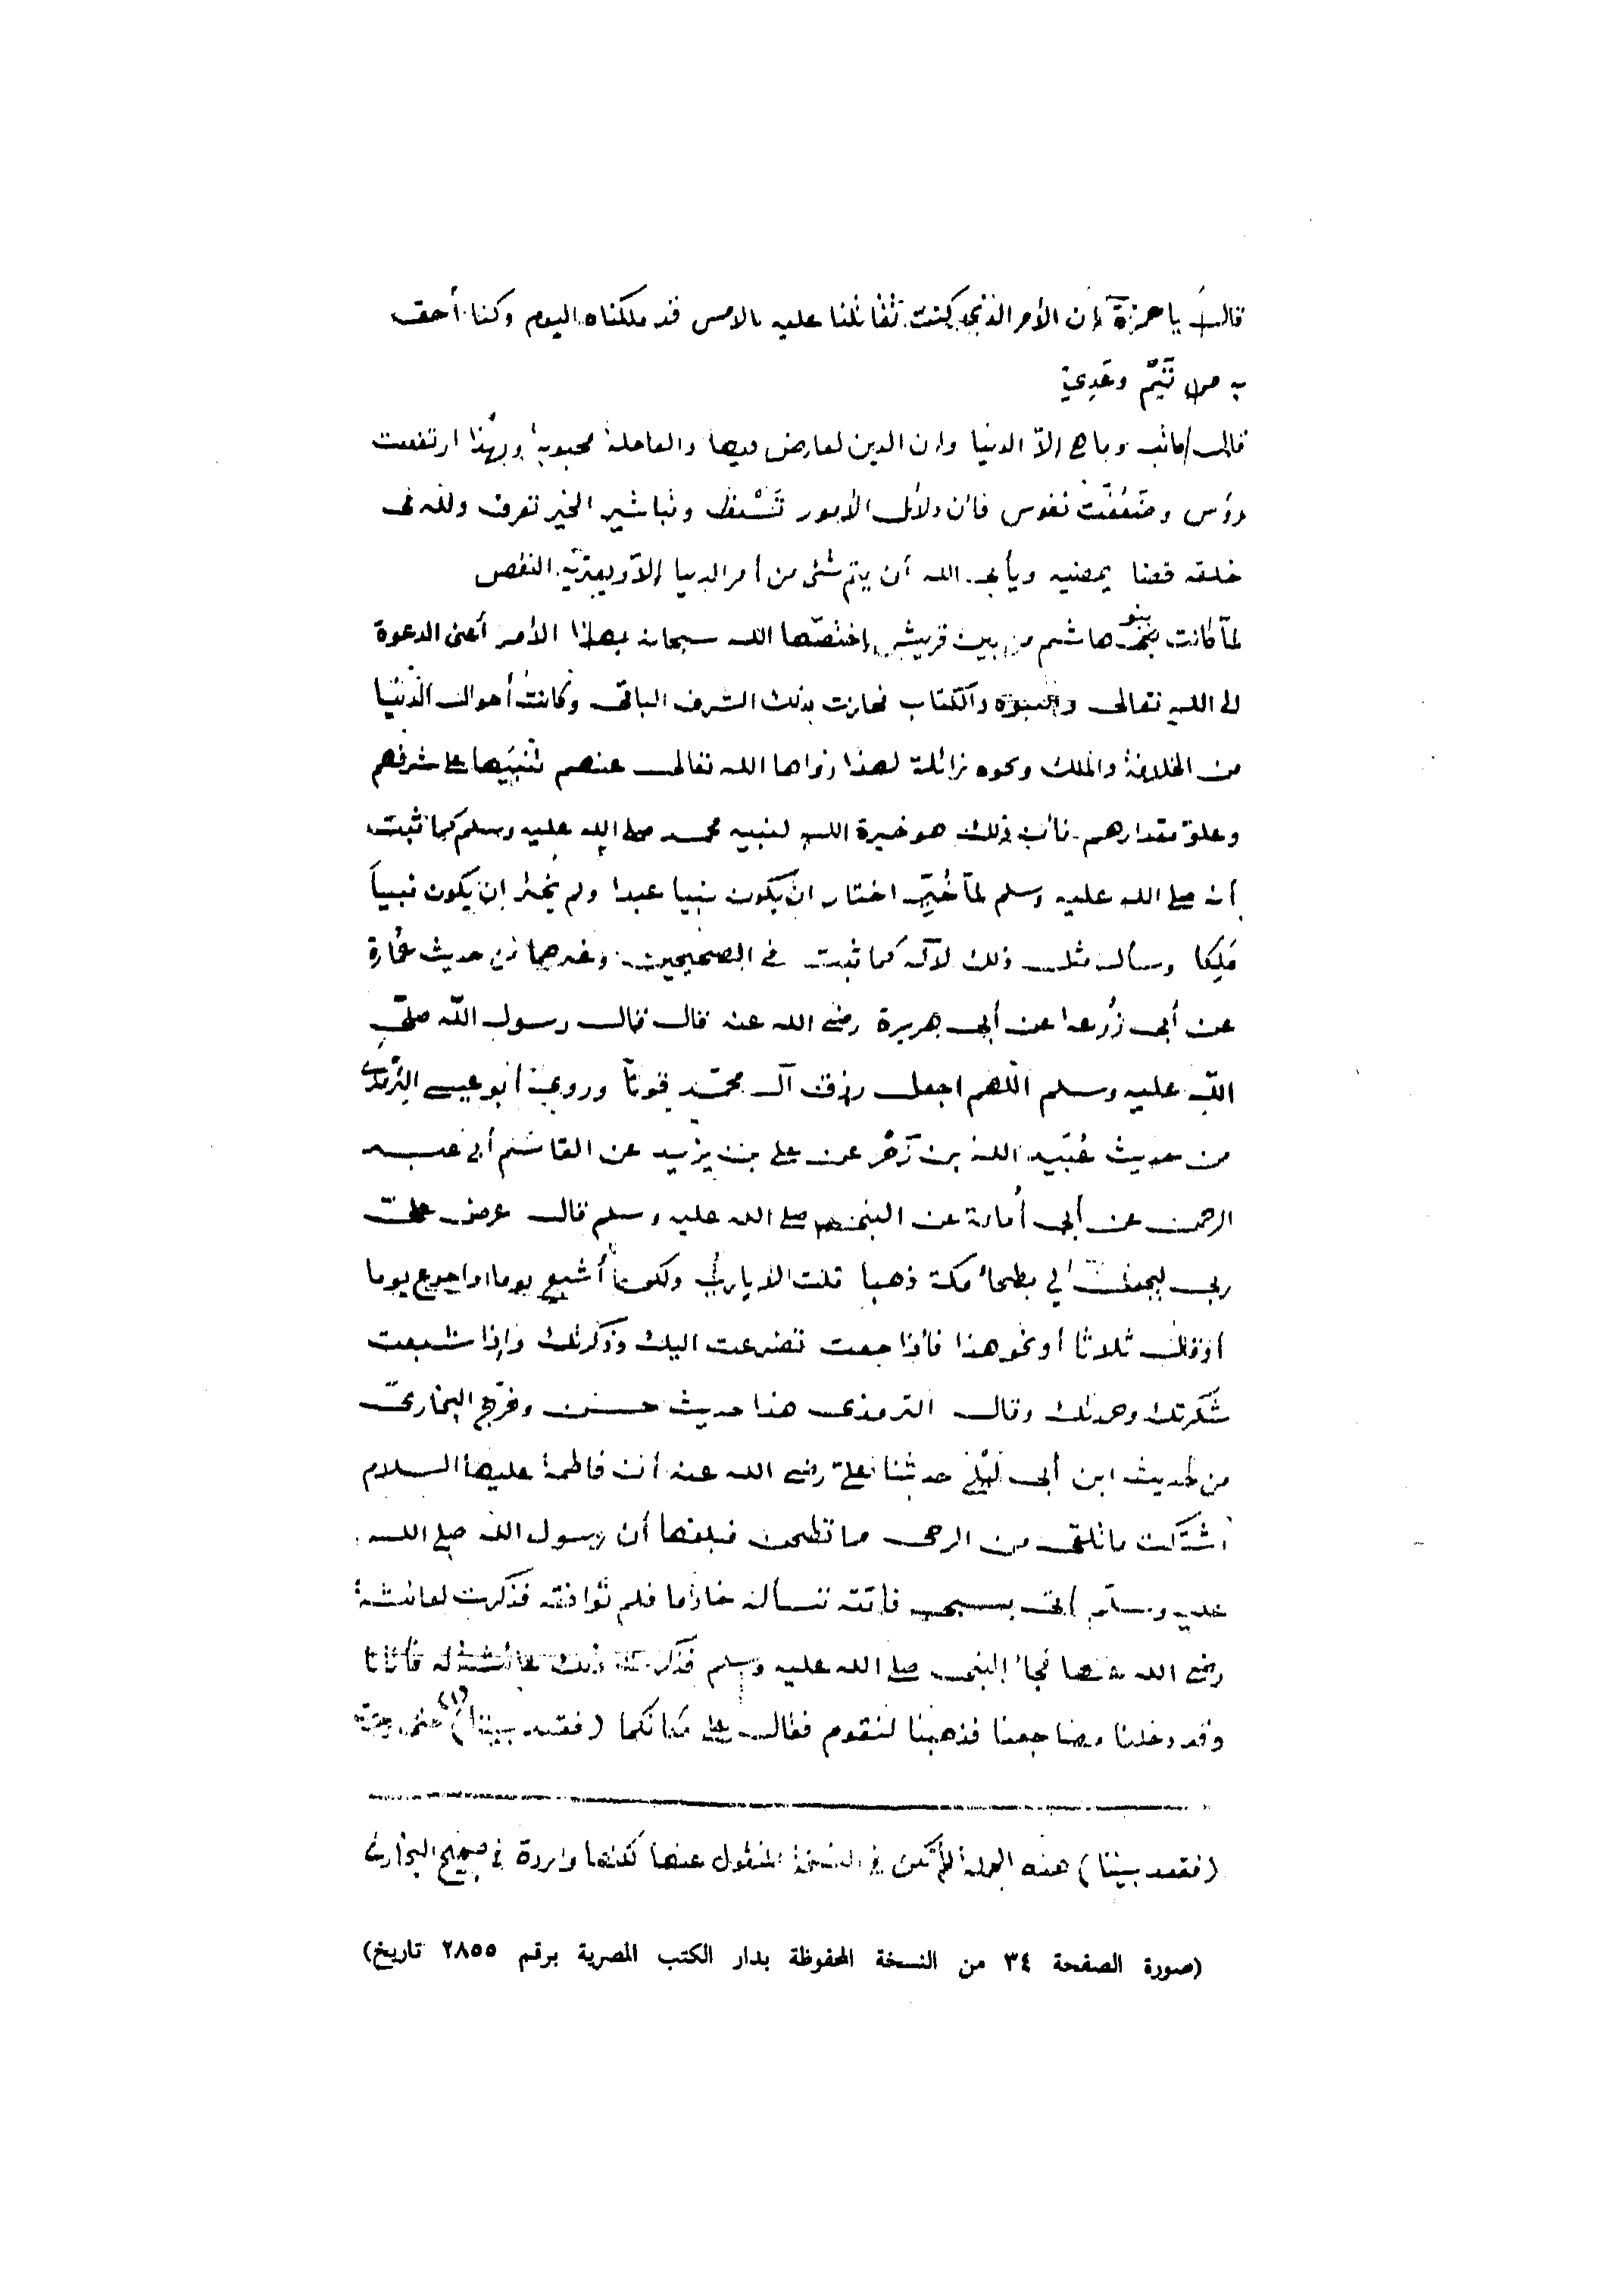 قال يا حمزة إن الأمر الذي كنت تقاتلنا عليه بالامس قد ملكناه اليوم وكنا أحق
به من تَيْم وعَدِيّ
وما هي إلاّ الدنيا وان الدين لعارض فيها والعاجلة محبوبة وبهذا ارتفعت
رؤس وضَعُفَت نفوس فان دلائل الأمور تَسْبق وتباشير الخير تعرف ولله فى
خلقه قضا يمضيه ويأبى الله أن يتم شئ من أمر الدنيا إلاّ ويعتريه النقص
لمّا كانت بنو هاشم من بين قريش اختصّها الله سبحانه بهذا الأمر أعنى الدعوة
الى الله تعالى والنبوة والكتاب فحازت بذلك الشرف الباقى وكانت أحوال الدنيا
من الخلافة والملك ونحوه زائلة لهذا زواها الله تعالى عنهم تنبيها على شرفهم
وعلوّ مقدارهم فان ذلك هو خيرة الله لنبيه محمد صلى الله عليه وسلم كما ثبت
أنه صلى الله عليه وسلم لمّا خُيّر اختار ان يكون نبيا عبدا ولم يختر ان يكون نبياً
مَلِكا وسأل مثل ذلك لآله كما ثبت فى الصحيحين وغيرهما من حديث عُمارة
عن أبى زُرعة عن أبى هريرة رضى الله عنه قال قال رسول الله صلّى
الله عليه وسلم اللهم اجعل رزق آل محمّد قوتاً وروى أبو عيسى الترمذى
من حديث عُبَيد الله بن زَحْر عن على بن يزيد عن القاسم أبى عبد
الرحمن عن أبى أُمامة عن النبى صلى الله عليه وسلم قال عرض علىّ
ربى ليجعل لي بطحاء مكة ذهبا قلت لا يا رب ولكن أشبع يوما واجوع يوما
أو قال ثلاثا أو نحو هذا فاذا جعت تضرعت اليك وذكرتك وإذا شبعت
شكرتك وحمدتك وقال الترمذى هذا حديث حسن وخرّج البخارىّ
من حديث ابن أبى لَيْلَى حدثنا علىّ رضى الله عنه أن فاطمة عليها السلام
اشتكت ما تلقى من الرحى مما تطحن فبلغها أن رسول الله صلى الله
عليه وسلّم أتى بسبى فاتته تسأله خادما فلم تُوافقه فذكرت لعائشة
رضى الله عنها فجاء النبى صلى الله عليه وسلم فذكرت ذلك عائشة له فأتانا
وقد دخلنا مضاجعنا فذهبنا لنقوم فقال على مكانكما (فقعد بيننا) (١) حتى وجدت
(فقعد بيننا) هذه الجملة لم تكن في النسخة المنقول عنها لكنها واردة فى صحيح البخارى
(صورة الصفحة ٣٤ من النسخة المحفوظة بدار الكتب المصرية برقم ٢٨٥٥ تاريخ)